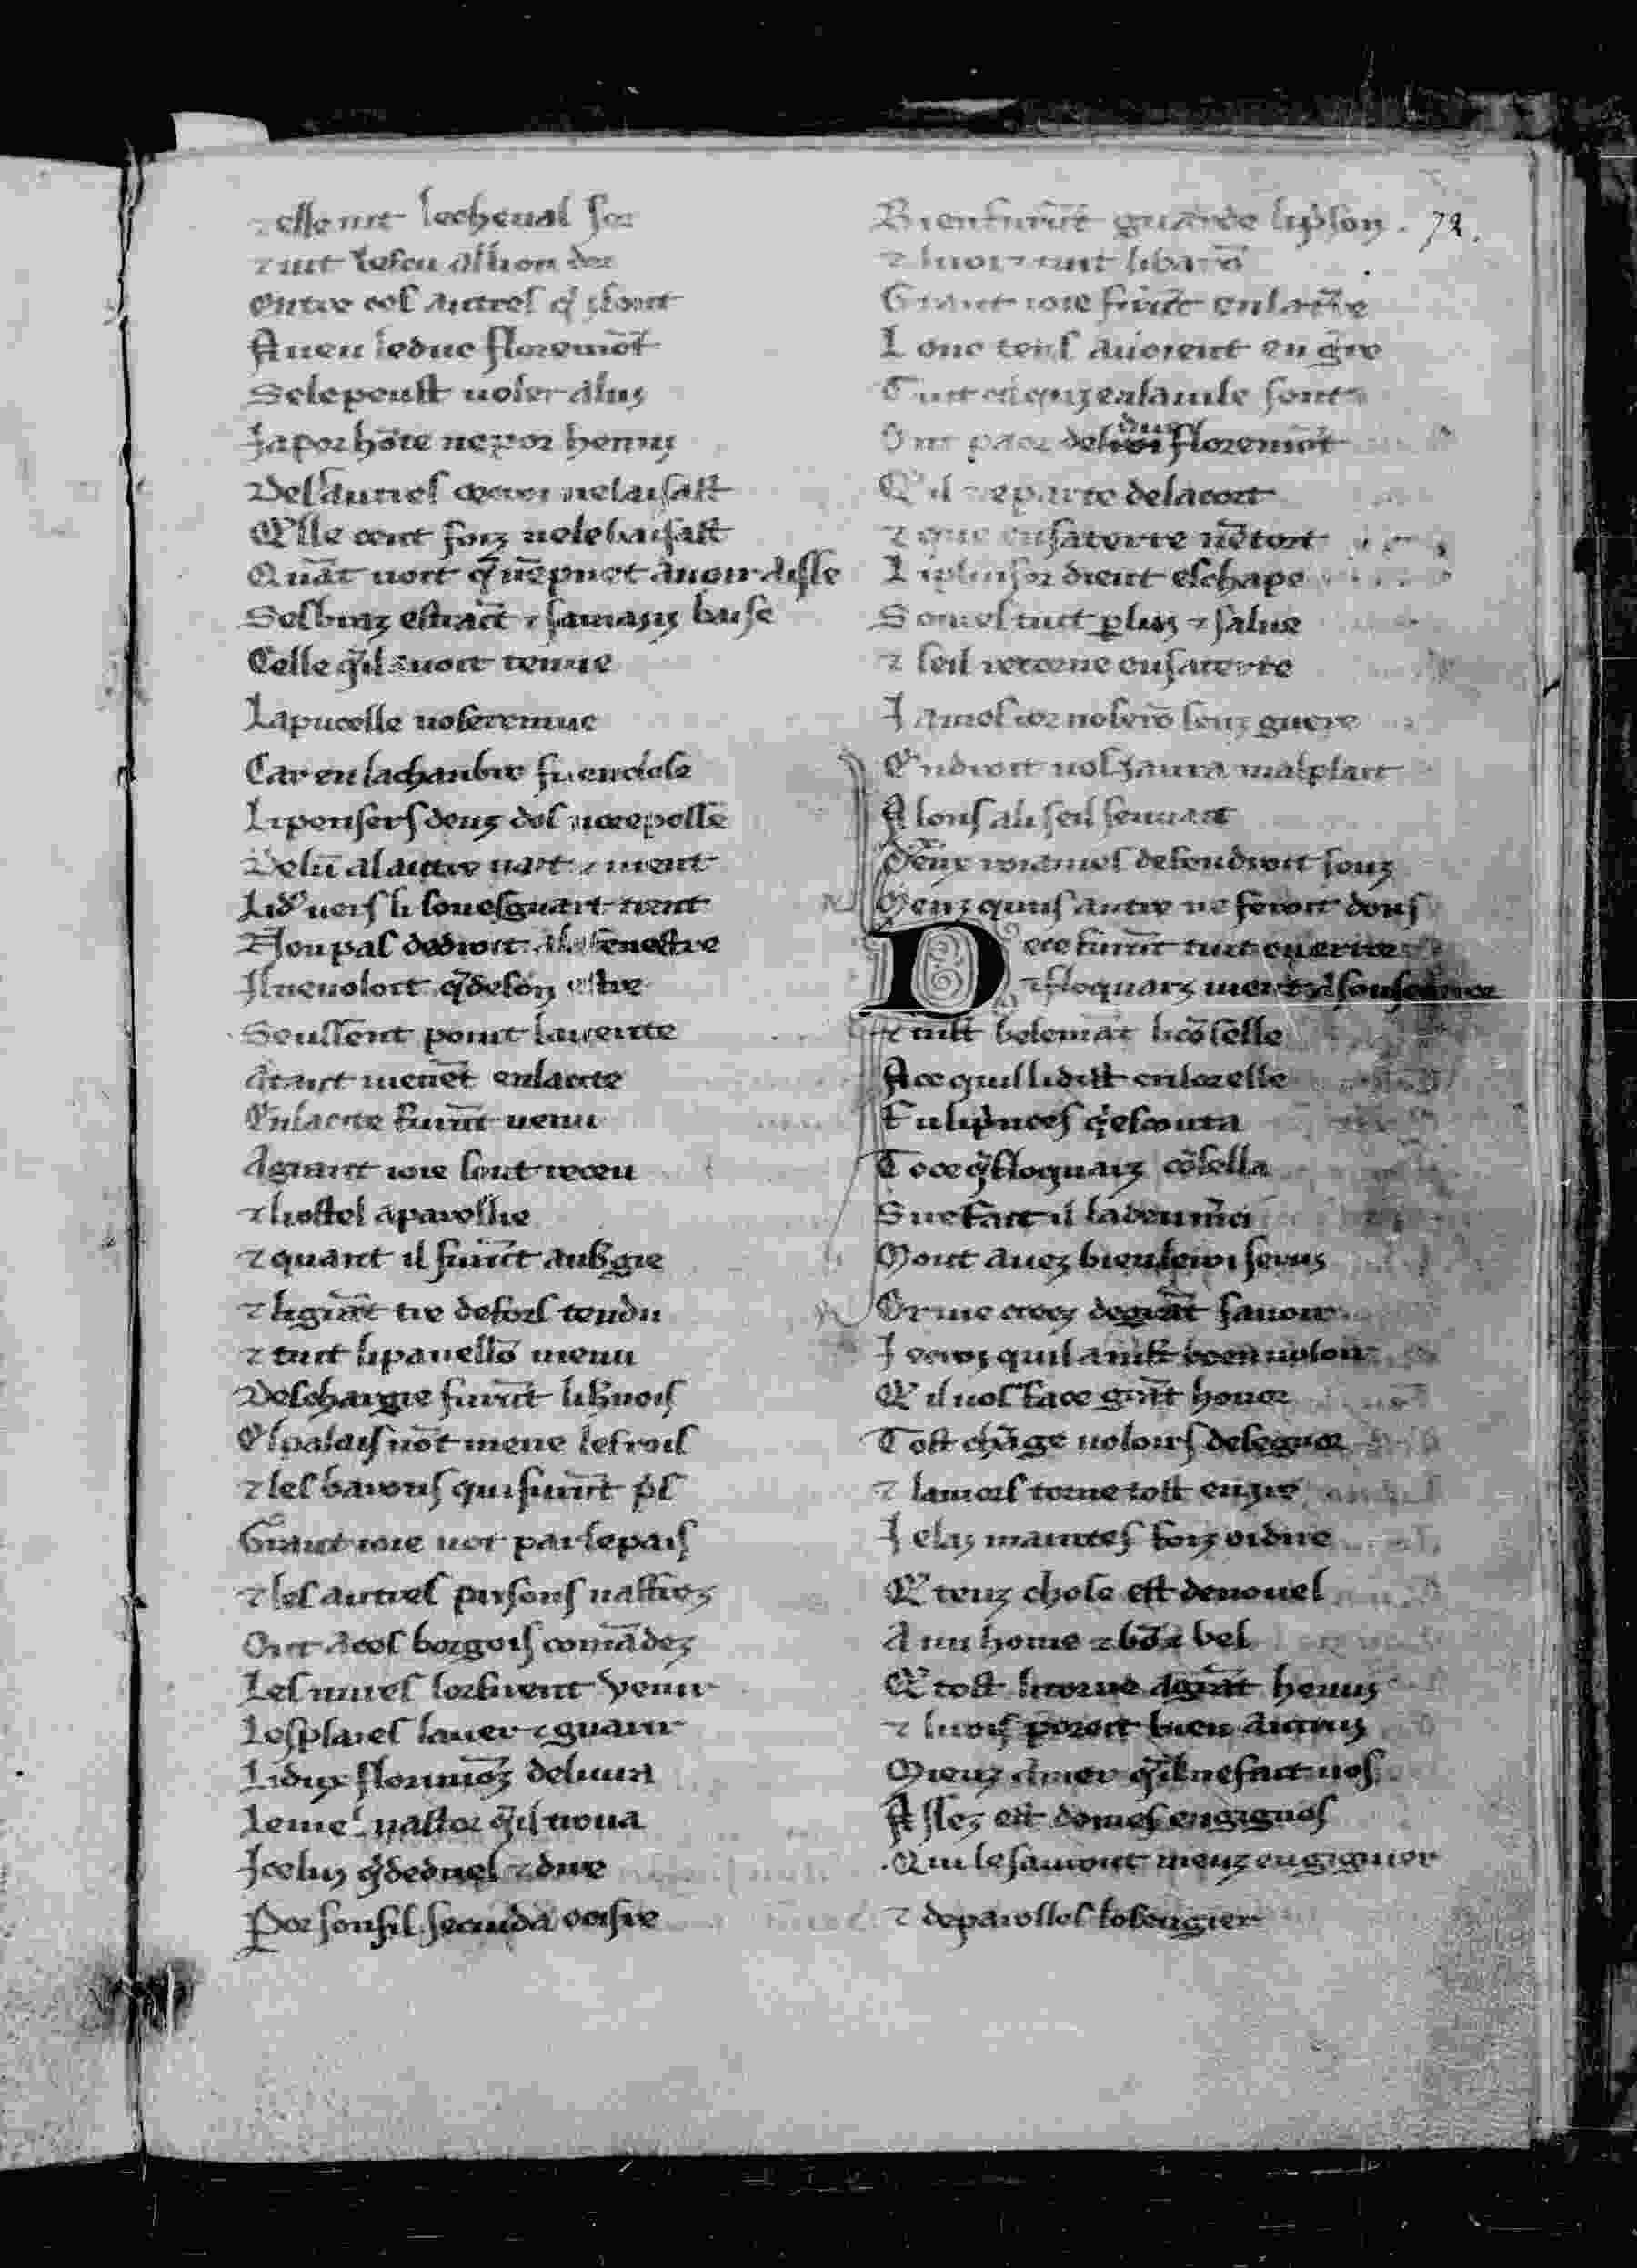 ⁊ elle uit lecheual sor
⁊ uit lescu al lion dor
Entre ces autres q̓ i sont
A ueu leduc floremōt
Se le peust uoler a lui
Ja por hōte ne por henui
Des autres ne laisast
Q̓lle cent foiz ne le baisast
Quāt uoit q̄ nē puet auoir aisse
Ses braz estraīt ⁊ samain baise
Celle q̄ il auoit tenue
La pucelle uose remue
Car en la chanbre fu enclose
Li pensers deuz
De lū al autre uait ⁊ uient
Li d' uers li son esguart tient
Non pas dedroit fenestre
Il ne uoloit q̄ de son estre
Seussent point la uerite
Atant uienēt en la cite
En la cite furēt uenu
A grant ioie sont receu
⁊ li ostel aparellie
⁊ quant il furēt aub̄gie
⁊ li grāt tre defors tendu
⁊ tuit li pauellō menu
Deschargie furēt li h̄nois
El palais nōt mene les rois
⁊ les barons qui furēt p̓s
Grant ioie not par le pais
⁊ les autres prisons nafrez
Ont a ces borgois comādez
Les mires lor firent venir
Les plaies lauer ⁊ guarir
Li dux florimōz deliura
Le mes nastor q̄ il troua
Icelui q̄ de duel ⁊ dire
Por son fil
Bien furēt guarde li p̓son . 72.
⁊ li roi ⁊ tuit li barō
Grant ioie firēt en la t̄re
Lonc tens auoient eu g̓re
Tuit cil qui en la uile sont
Ont paor del duc floremōt
Q̓ il ne parte de la cort
⁊ que en sa terre nē tort
Li plusor dient eschape
Somes tuit p̲ lui ⁊ salue
⁊ sel retorne en sa terre
Ja mos ior no serō senz guere
Endroit nos i aura mal plait
A lons a li seil sen uait
Deux roiames defendroit souz
Meuz quns autre ne feroit dous
Dece furēt tuit en
⁊ floquarz uient
⁊ mlt belemāt li cōselle
A ce quil li dist en lorelle
Fu li p̓nces q̓ escouta
To ce q̄ floquarz cōsella
Sire fait il la deu m̄ci
Mont auez bien serui
Or me creez de grāt sauoir
Je croi quil a mlt boen uoloir
Q̓ il nos face grāt honor
Tost chāge uoloirs de segnor
⁊ lamors torne tost en ire
Je lai maintes foiz oi dire
Q̓ teuz chose est de nouel
A un home ⁊ bō ⁊ bel
Q̓ tost li torne a grāt henui
⁊ li rois poroit bien autrui
Mieuz amer q̄ il ne fait uos
Assez est domes engignos
Qui le sauront mieuz engignier
⁊ de parolles losengier